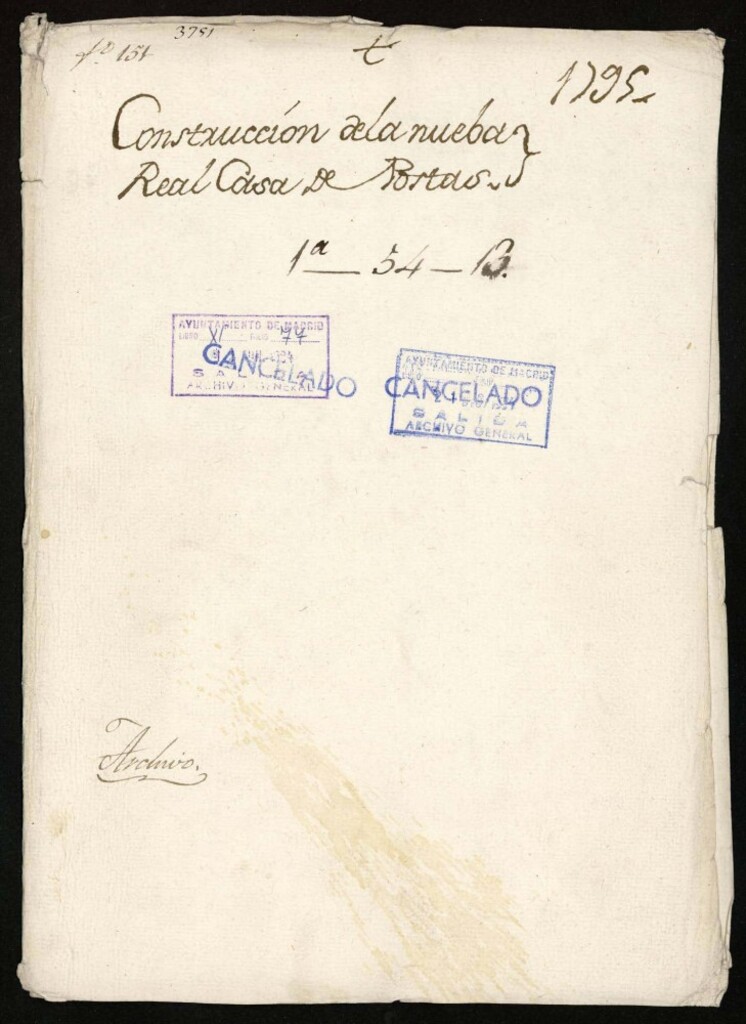 fº 151
3751
1795.
Construcción dela nueba
Real Casa de Postas.
1ª — 54 — 13.
AYUNTAMIENTO DE MADRID
XI 74
CANCELADO
SALIDA
ARCHIVO GENERAL
AYUNTAMIENTO DE MADRID
CANCELADO
SALIDA
ARCHIVO GENERAL
Archivo.